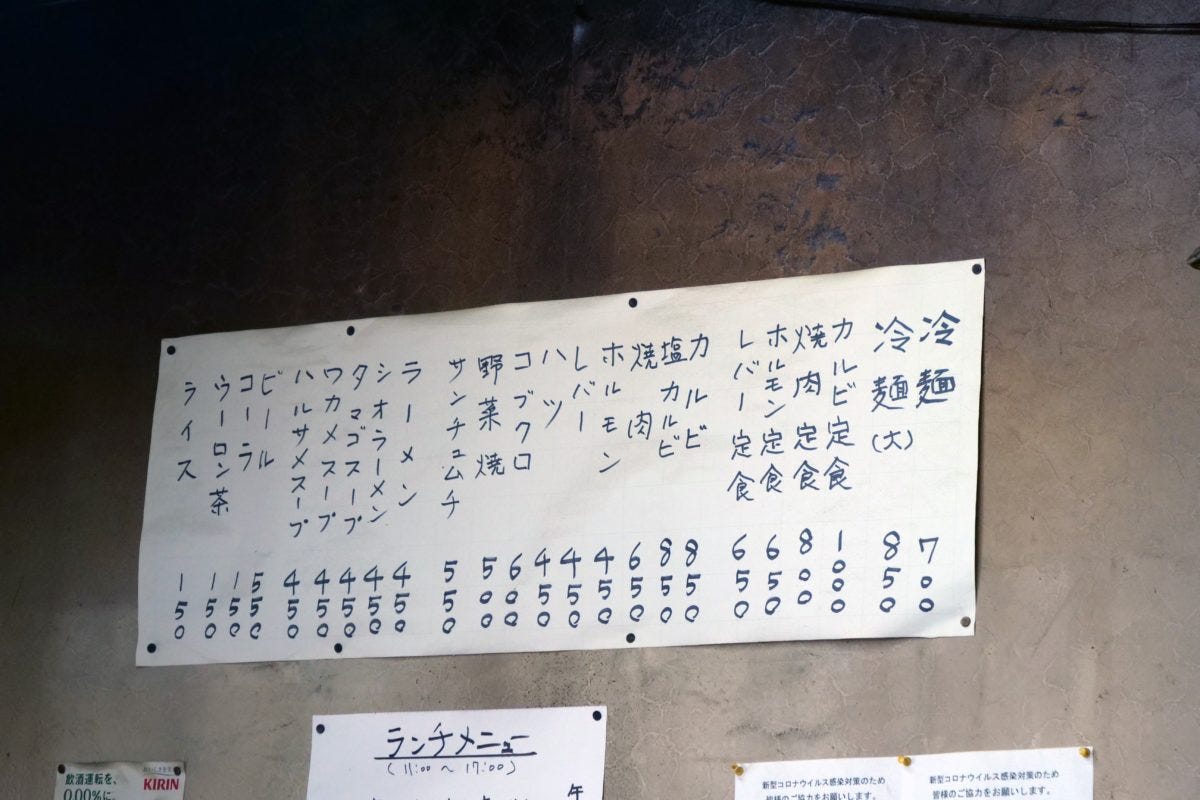 冷麺 700
冷麺(大) 850
カルビ定食 1000
焼肉定食 800
ホルモン定食 650
レバー定食 650
カルビ 850
塩カルビ 850
焼肉 650
ホルモン 450
レバー 450
ハツ 450
コブクロ 600
野菜焼 500
サンチュムチ 550
ラーメン 450
シオラーメン 450
タマゴスープ 450
ワカメスープ 450
ハルサメスープ 450
ビール 550
コーラ 150
ウーロン茶 150
ライス 150
ランチメニュー
(11:00〜17:00)
飲酒運転を、
0.00%に。
KIRIN
新型コロナウイルス感染対策のため
皆様のご協力をお願いします。
新型コロナウイルス感染対策のため
皆様のご協力をお願いします。